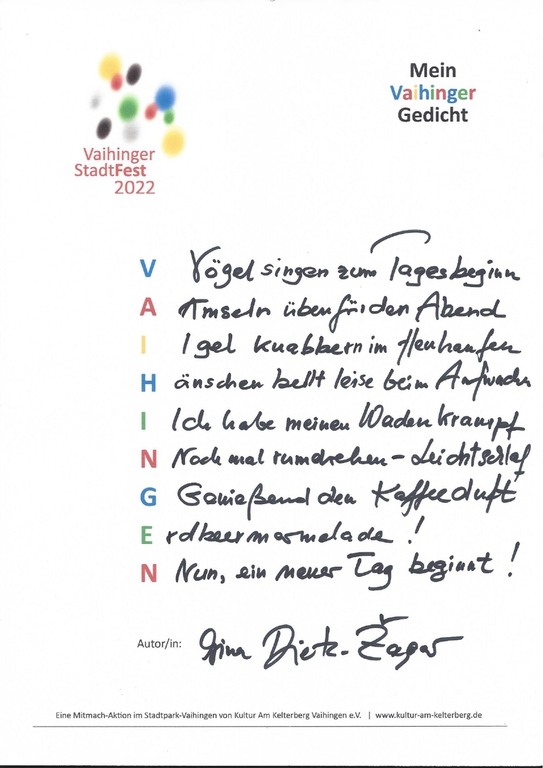 Vaihinger
StadtFest
2022
Mein
Vaihinger
Gedicht
V Vögel singen zum Tagesbeginn
A Amseln üben für den Abend
I Igel knabbern im Heuhaufen
H änschen bellt leise beim Aufwachen
I Ich habe meinen Wadenkrampf
N Noch mal rumdrehen - Leichtschlaf
G Genießend den Kaffeeduft
E rdbeermarmelade !
N Nun, ein neuer Tag beginnt !
Autor/in: Dietz-Žagar
Eine Mitmach-Aktion im Stadtpark-Vaihingen von Kultur Am Kelterberg Vaihingen e.V. | www.kultur-am-kelterberg.de